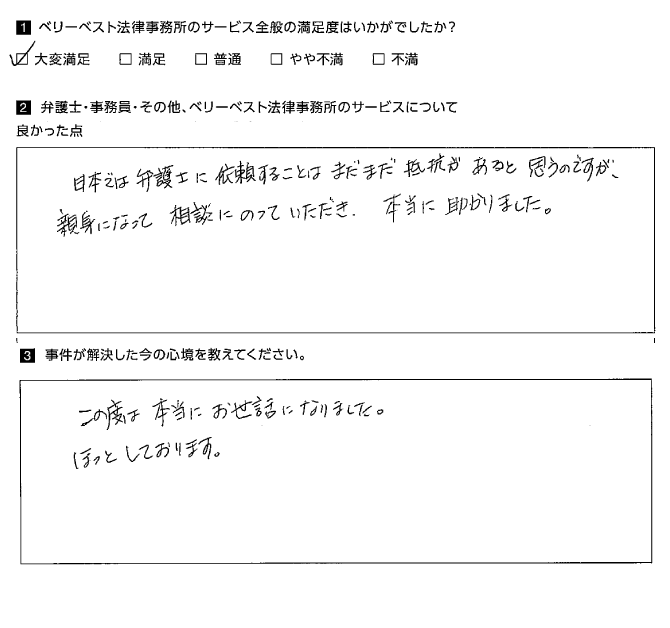 1 ベリーベスト法律事務所のサービス全般の満足度はいかがでしたか?
☑ 大変満足 □ 満足 □ 普通 □ やや不満 □ 不満
2 弁護士・事務員・その他、ベリーベスト法律事務所のサービスについて
良かった点
日本では弁護士に依頼することはまだまだ抵抗があると思うのですが、
親身になって相談にのっていただき、本当に助かりました。
3 事件が解決した今の心境を教えてください。
この度は本当にお世話になりました。
ほっとしております。